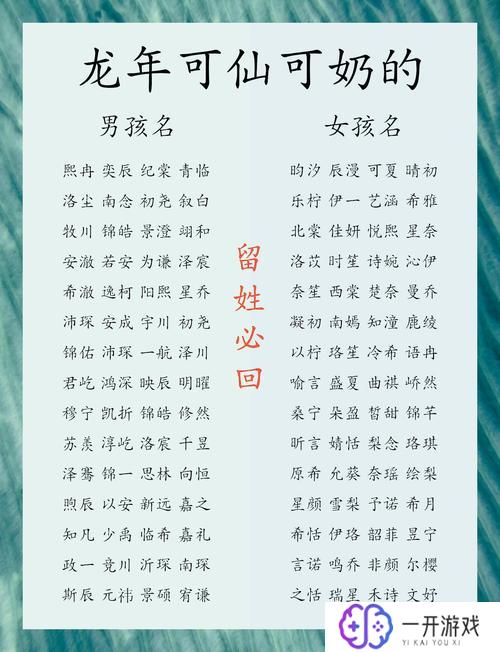 龙年可仙可奶的
男孩名
熙冉 奕辰 纪棠 青临
洛尘 南念 初尧 叙白
牧川 锦皓 景澄 翊和
安澈 若安 为谦 泽宸
希澈 逸柯 阳熙 星乔
沛琛 安成 宇川 初尧
锦佑 沛琛 一航 泽川
君屹 鸿深 映辰 明曜
穆宁 凯折 锦皓 修然
苏羡 淳屹 洛宸 千昱
泽骞 锦一 思林 向恒
煦辰 以安 新远 嘉之
知凡 少禹 临希 嘉礼
政一 竞川 沂琛 南琛
斯辰 元祎 景硕 宥谦
留姓必回
女孩名
昀汐 辰漫 可夏 晴初
乐柠 伊一 艺涵 希雅
北棠 佳妍 悦熙 星奈
洛苡 时笙 诗婉 沁伊
奈笙 西棠 楚奈 曼乔
凝初 南嫣 知潼 鹿绫
以柠 珞笙 冷希 语冉
喻言 盛夏 曲祺 峤然
桑宁 朵盈 皙甜 锦芊
昕言 婧恬 梨念 珞琪
原希 允葵 奈瑶 绘梨
星颜 雪梨 予诺 希月
希恬 伊珞 韶菲 昱宁
言诺 鸣乔 非颜 尔樱
之恬 瑞星 禾诗 文妤
一开游戏
YI KAI YOU XI